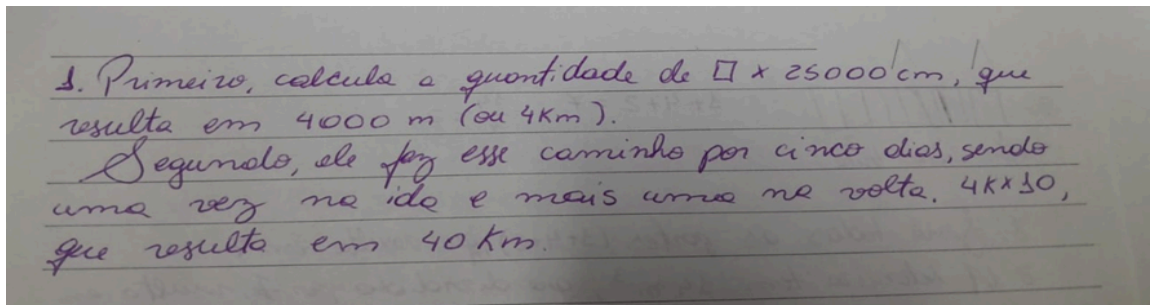 1. Primeiro, calcula a quantidade de □ x 25000 cm, que
resulta em 4000 m (ou 4Km).
Segundo, ele faz esse caminho por cinco dias, sendo
uma vez na ida e mais uma na volta. 4Kx10,
que resulta em 40 Km.